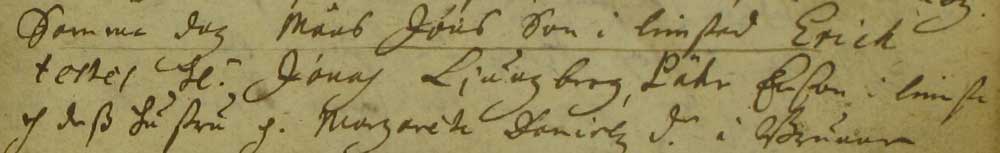 Samma dag Måns Jöns Son i limstad Erich
testes H: Jonas Liungberg, Lahr Erson i limst
h deß hustru h. Margareta Daniels d: i